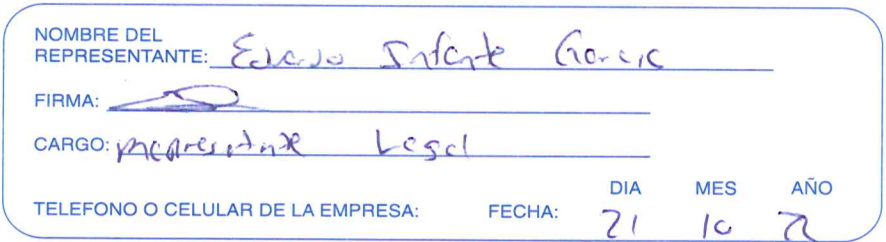 NOMBRE DEL
REPRESENTANTE: Eduardo Infante Garcia
FIRMA:
CARGO: Representante Legal
DIA MES AÑO
TELEFONO O CELULAR DE LA EMPRESA: FECHA: 21 10 22